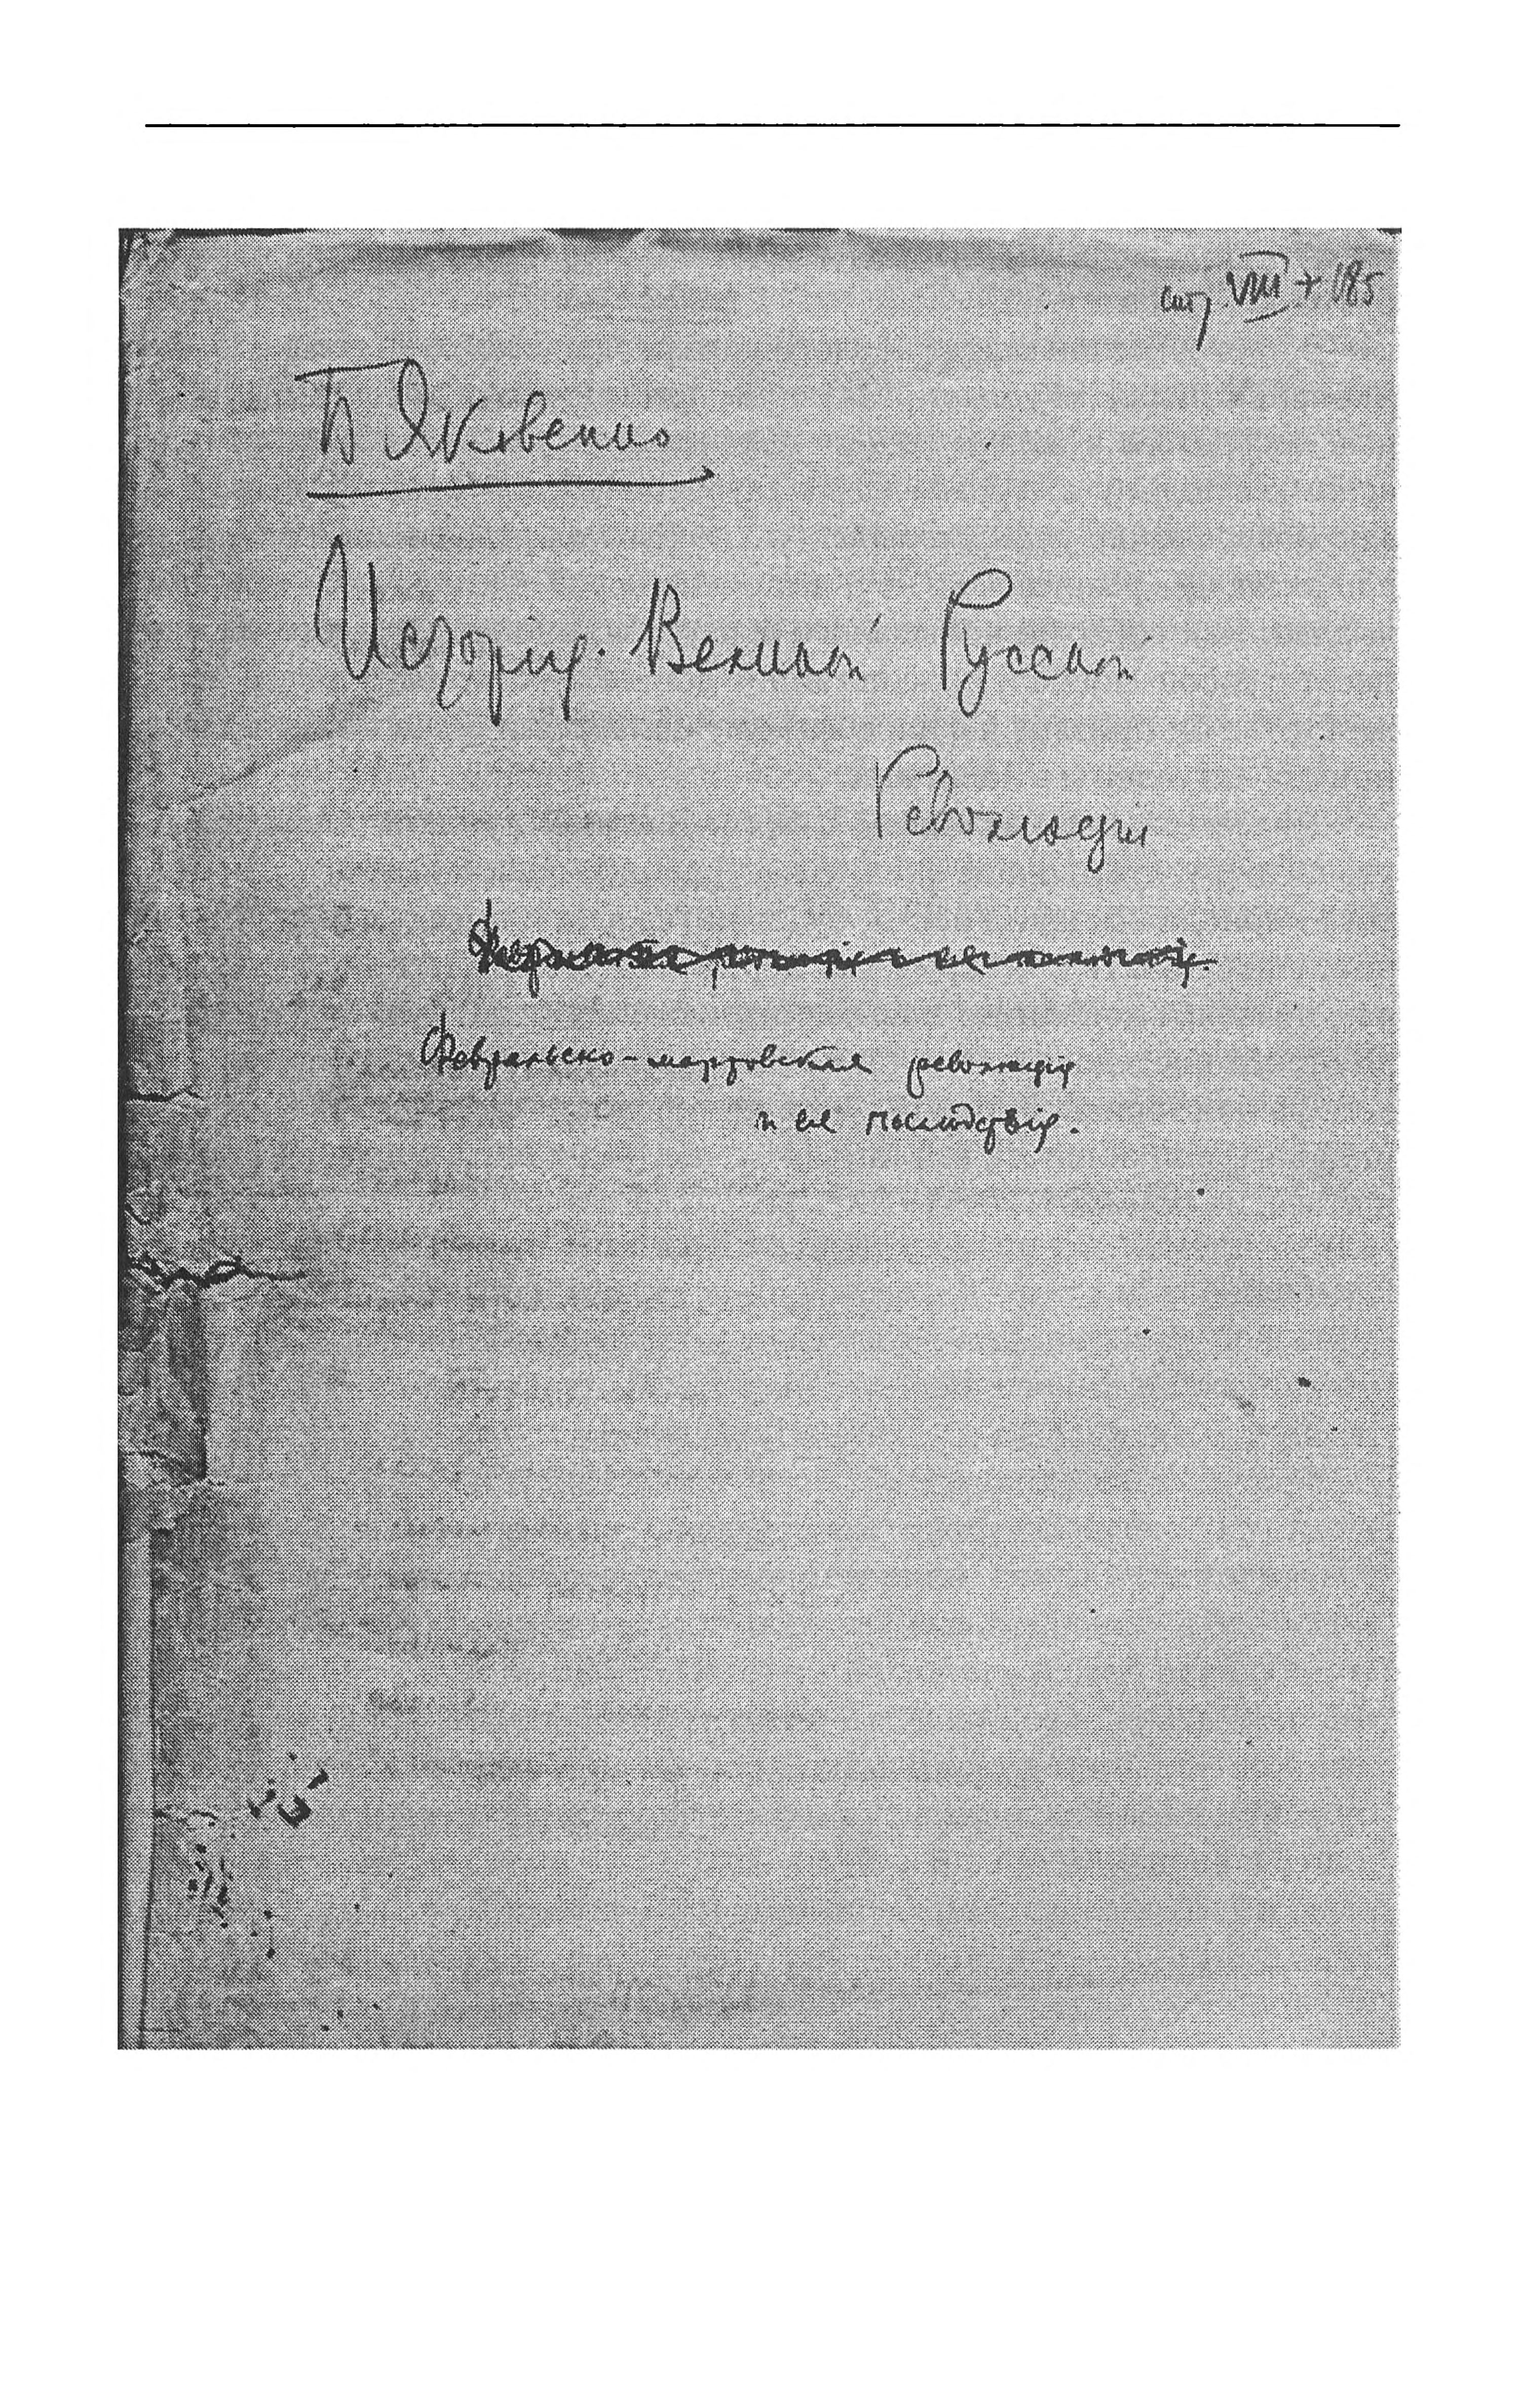 стр. VIII + 185
Б Яковенко
Исторія Великой Русской
Революціи
Февральско-мартовская революція
и ее послѣдствія.